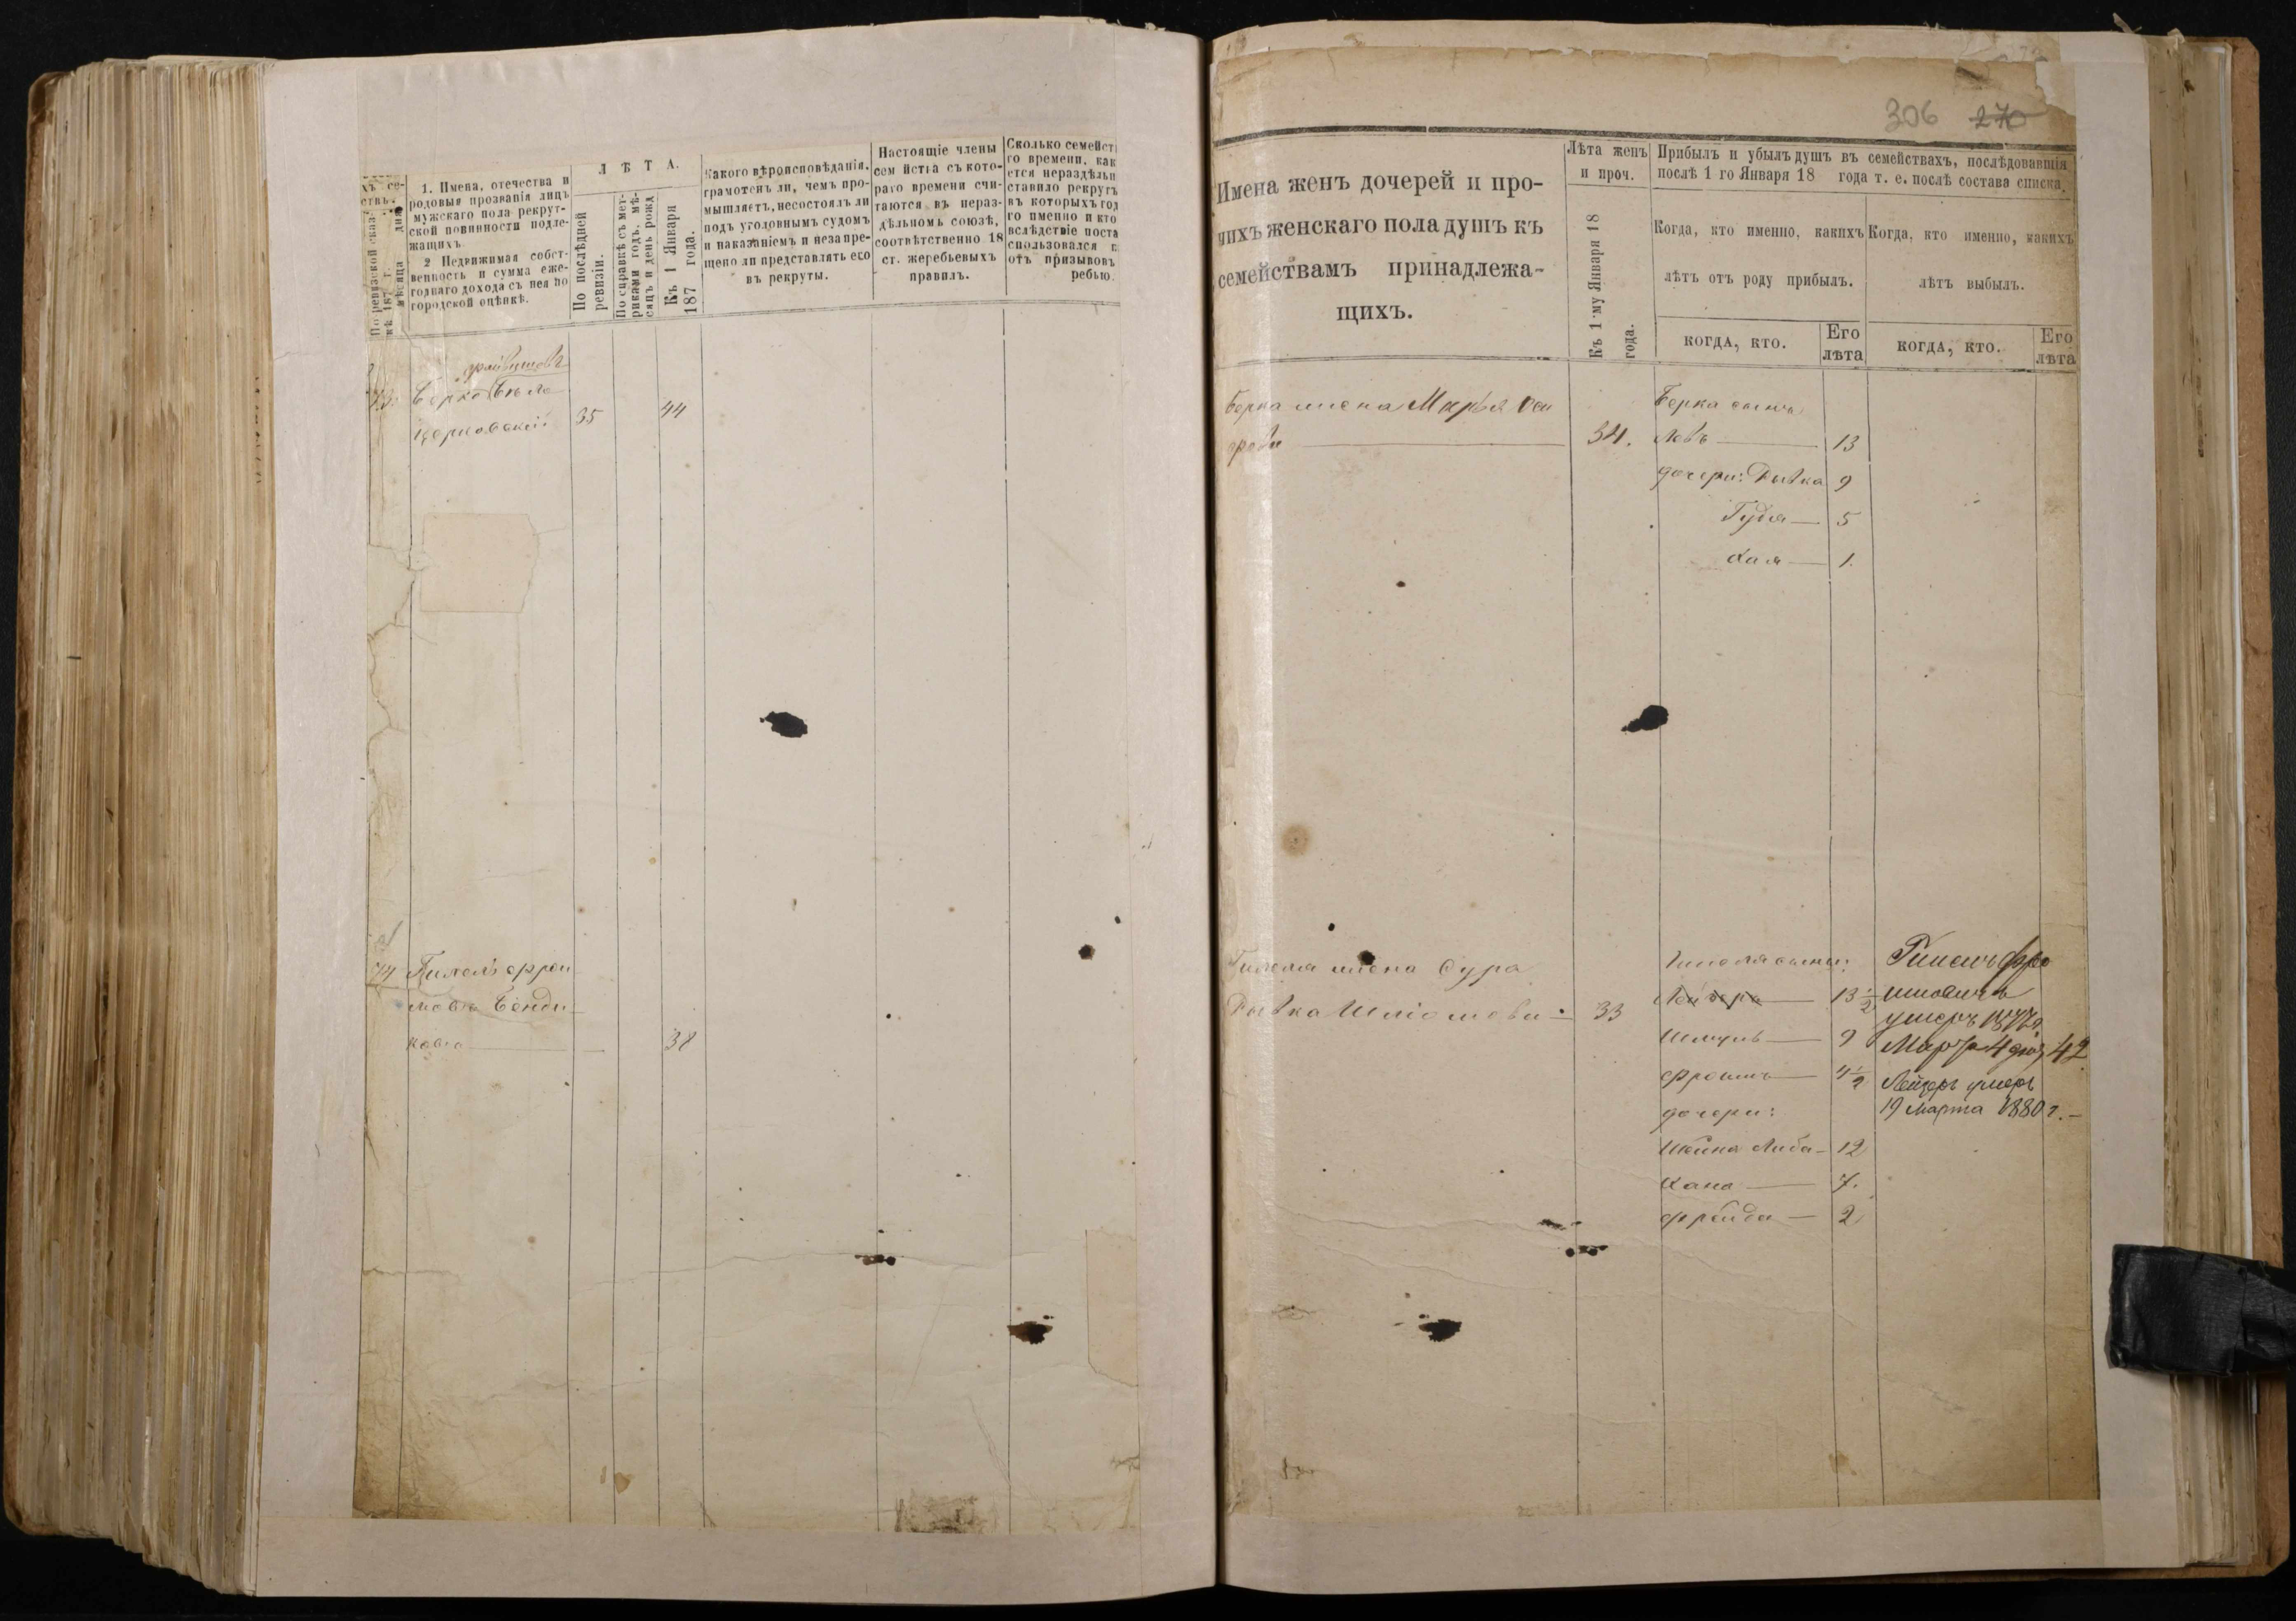 Л Ѣ Т А.
1. Имена, отечества и
родовыя прозванія лицъ
мужскаго пола рекрут-
ской повинности подле-
жащихъ.
2 Недвижимая собст-
венность и сумма еже-
годнаго дохода съ нея по
городской оцѣнкѣ.
По послѣдней
ревизіи.
По справкѣ съ мет-
риками годъ, мѣ-
сяцъ и день рожд
Къ 1 Января
187 года.
Какого вѣроисповѣданія,
грамотенъ ли, чемъ про-
мышляетъ, несостоялъ ли
подъ уголовнымъ судомъ
и наказаніемъ и незапре-
щено ли представлять его
въ рекруты.
Настоящіе члены
сем йства съ кото-
раго времени счи-
таются въ нераз-
дѣльномъ союзѣ,
соотвѣтственно 18
ст. жеребьевыхъ
правилъ.
Сколько семейст
го времени, как
ется нераздѣльн
ставило рекрутъ
въ которыхъ год
го именно и кто
вслѣдствіе поста
спользовался
отъ призывовъ
ребью.
73.
Берко Бѣло
церковскій
35
44
74
Гимель Фрои
мовъ Бенди
38
306 270
Имена женъ дочерей и про-
чихъ женскаго пола душъ къ
семействамъ принадлежа-
щихъ.
Лѣта женъ
и проч.
Къ 1-му Января 18
года.
Прибылъ и убылъ душъ въ семействахъ, послѣдовавшія
послѣ 1 го Января 18 года т. е. послѣ состава списка.
Когда, кто именно, какихъ
лѣтъ отъ роду прибылъ.
Когда, кто именно, какихъ
лѣтъ выбылъ.
КОГДА, КТО.
Его
лѣта
КОГДА, КТО.
Его
лѣта
Берка жена Марья
34.
Берка сынъ
Левъ 13
дочери: Рывка 9
Гудя 5
Хая 1.
жена Сура
Рывка Шліомови 33
сыны:
Лейзеръ 13 1/2
Шмуль 9
Фроимъ 4 1/2
дочери:
Шейна Либа 12
Хана 7.
Фрейда 2
умеръ 1877 г.
Марта 4 дня 42
Лейзеръ умеръ
19 марта 1880 г.